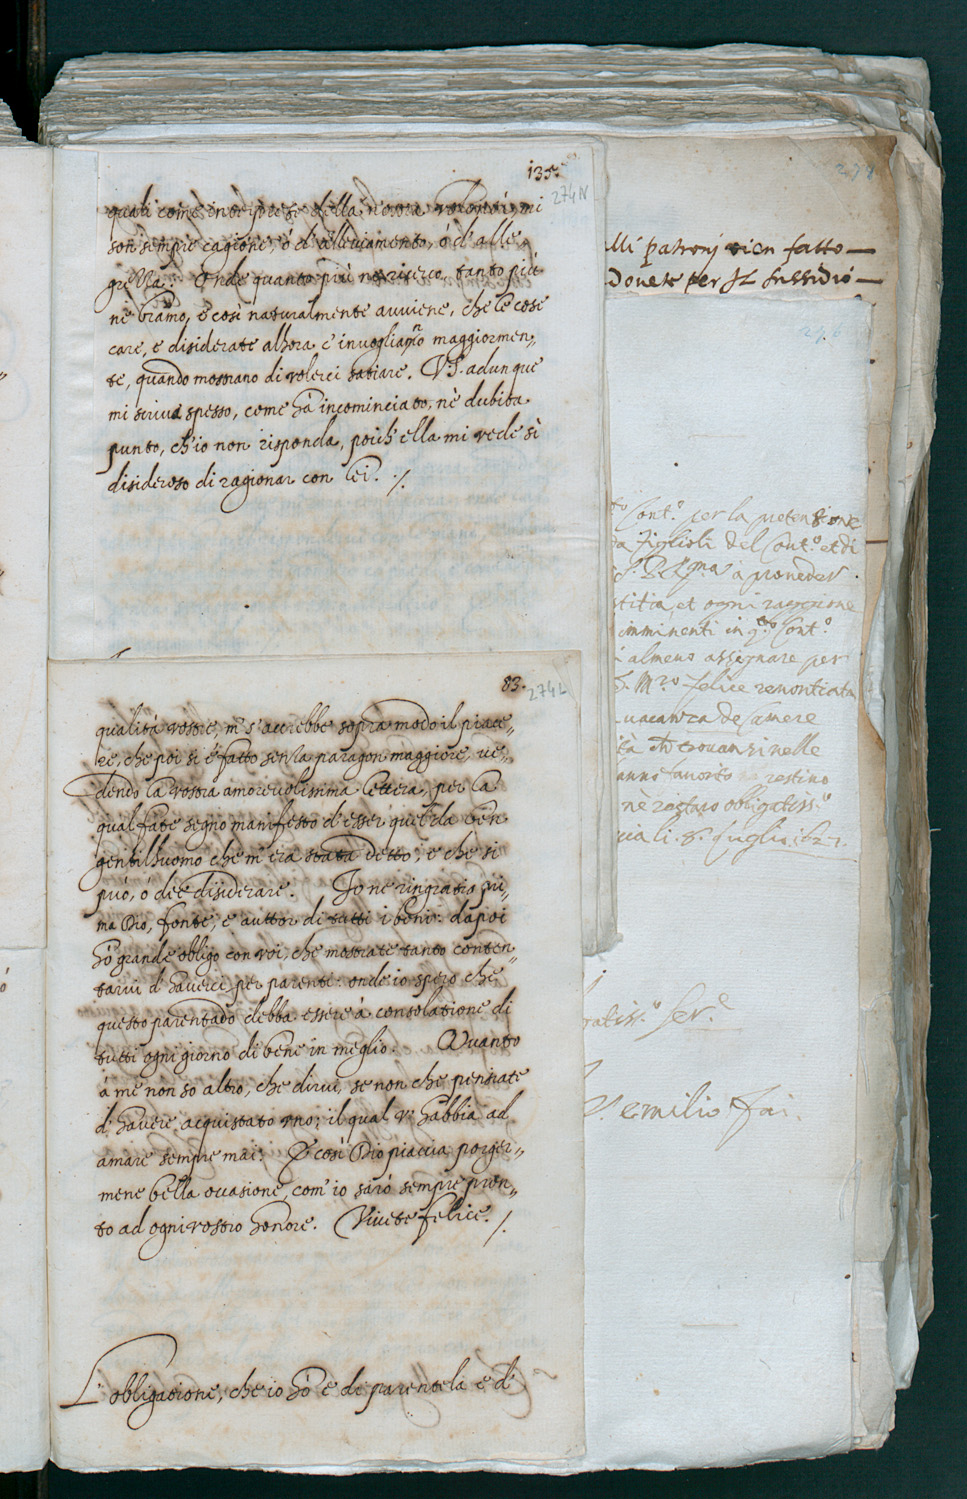 135.
274N
quali come interpreti della nostra volontà, mi
son sempre cagione, ó d'alleviamento, ó d'alle„
grezza. Onde quanto più ne ricevo, tanto più
ne bramo, e così naturalmente avviene, che le cose
care, e disiderate alhora c'invogliano maggiormen„
te, quando mostrano di volerci satiare. V.S. adunque
mi scriva spesso, come hà incominciato, nè dubita
punto, ch'io non risponda, poich'ella mi vede sì
disideroso di ragionar con lei. /.
83.
274L
qualità vostre, m's'accrebbe sopra modo il piace„
re, che poi si é fatto senza paragon maggiore, ve„
dendo la vostra amorevolissima lettera, per la
qual fate segno manifesto d'esser quel da ben
gentilhuomo che m'era stata detto, e che si
può, ó dee disiderare. Io ne ringratio pri„
ma Dio, fonte, e auttor di tutti i beni: dapoi
hò grande obligo con voi, che mostrate tanto conten„
tarvi d'haverci per parenti: onde io spero che
questo parentado debba essere à consolatione di
tutti ogni giorno di bene in meglio. Quanto
á me non so altro, che dirvi, se non che pensiate
d'havere acquistato uno, il qual v'habbia ad
amare sempre mai. E così Dio piaccia porger„
mene bella occasione, com'io sarò sempre pron„
to ad ogni vostro honore. Vivete felice. /.
L'obligatione, che io hò e di parentela e d'
278
alli patroni vien fatto
Dovete per Il sussidio
276
Cont.º per la pretensione
figlioli del Cont.º et di
à proveder
stitia, et ogni raggione
imminenti in q.to Cont.º
almeno assegnare per
S. Mro felice renontiata
vacanza de Camere
trovansi nelle
anno favorito restino
nè restiro obligatiss.º
li. 8. luglio 1621.
gatiss.º Ser.e
emilio fai.